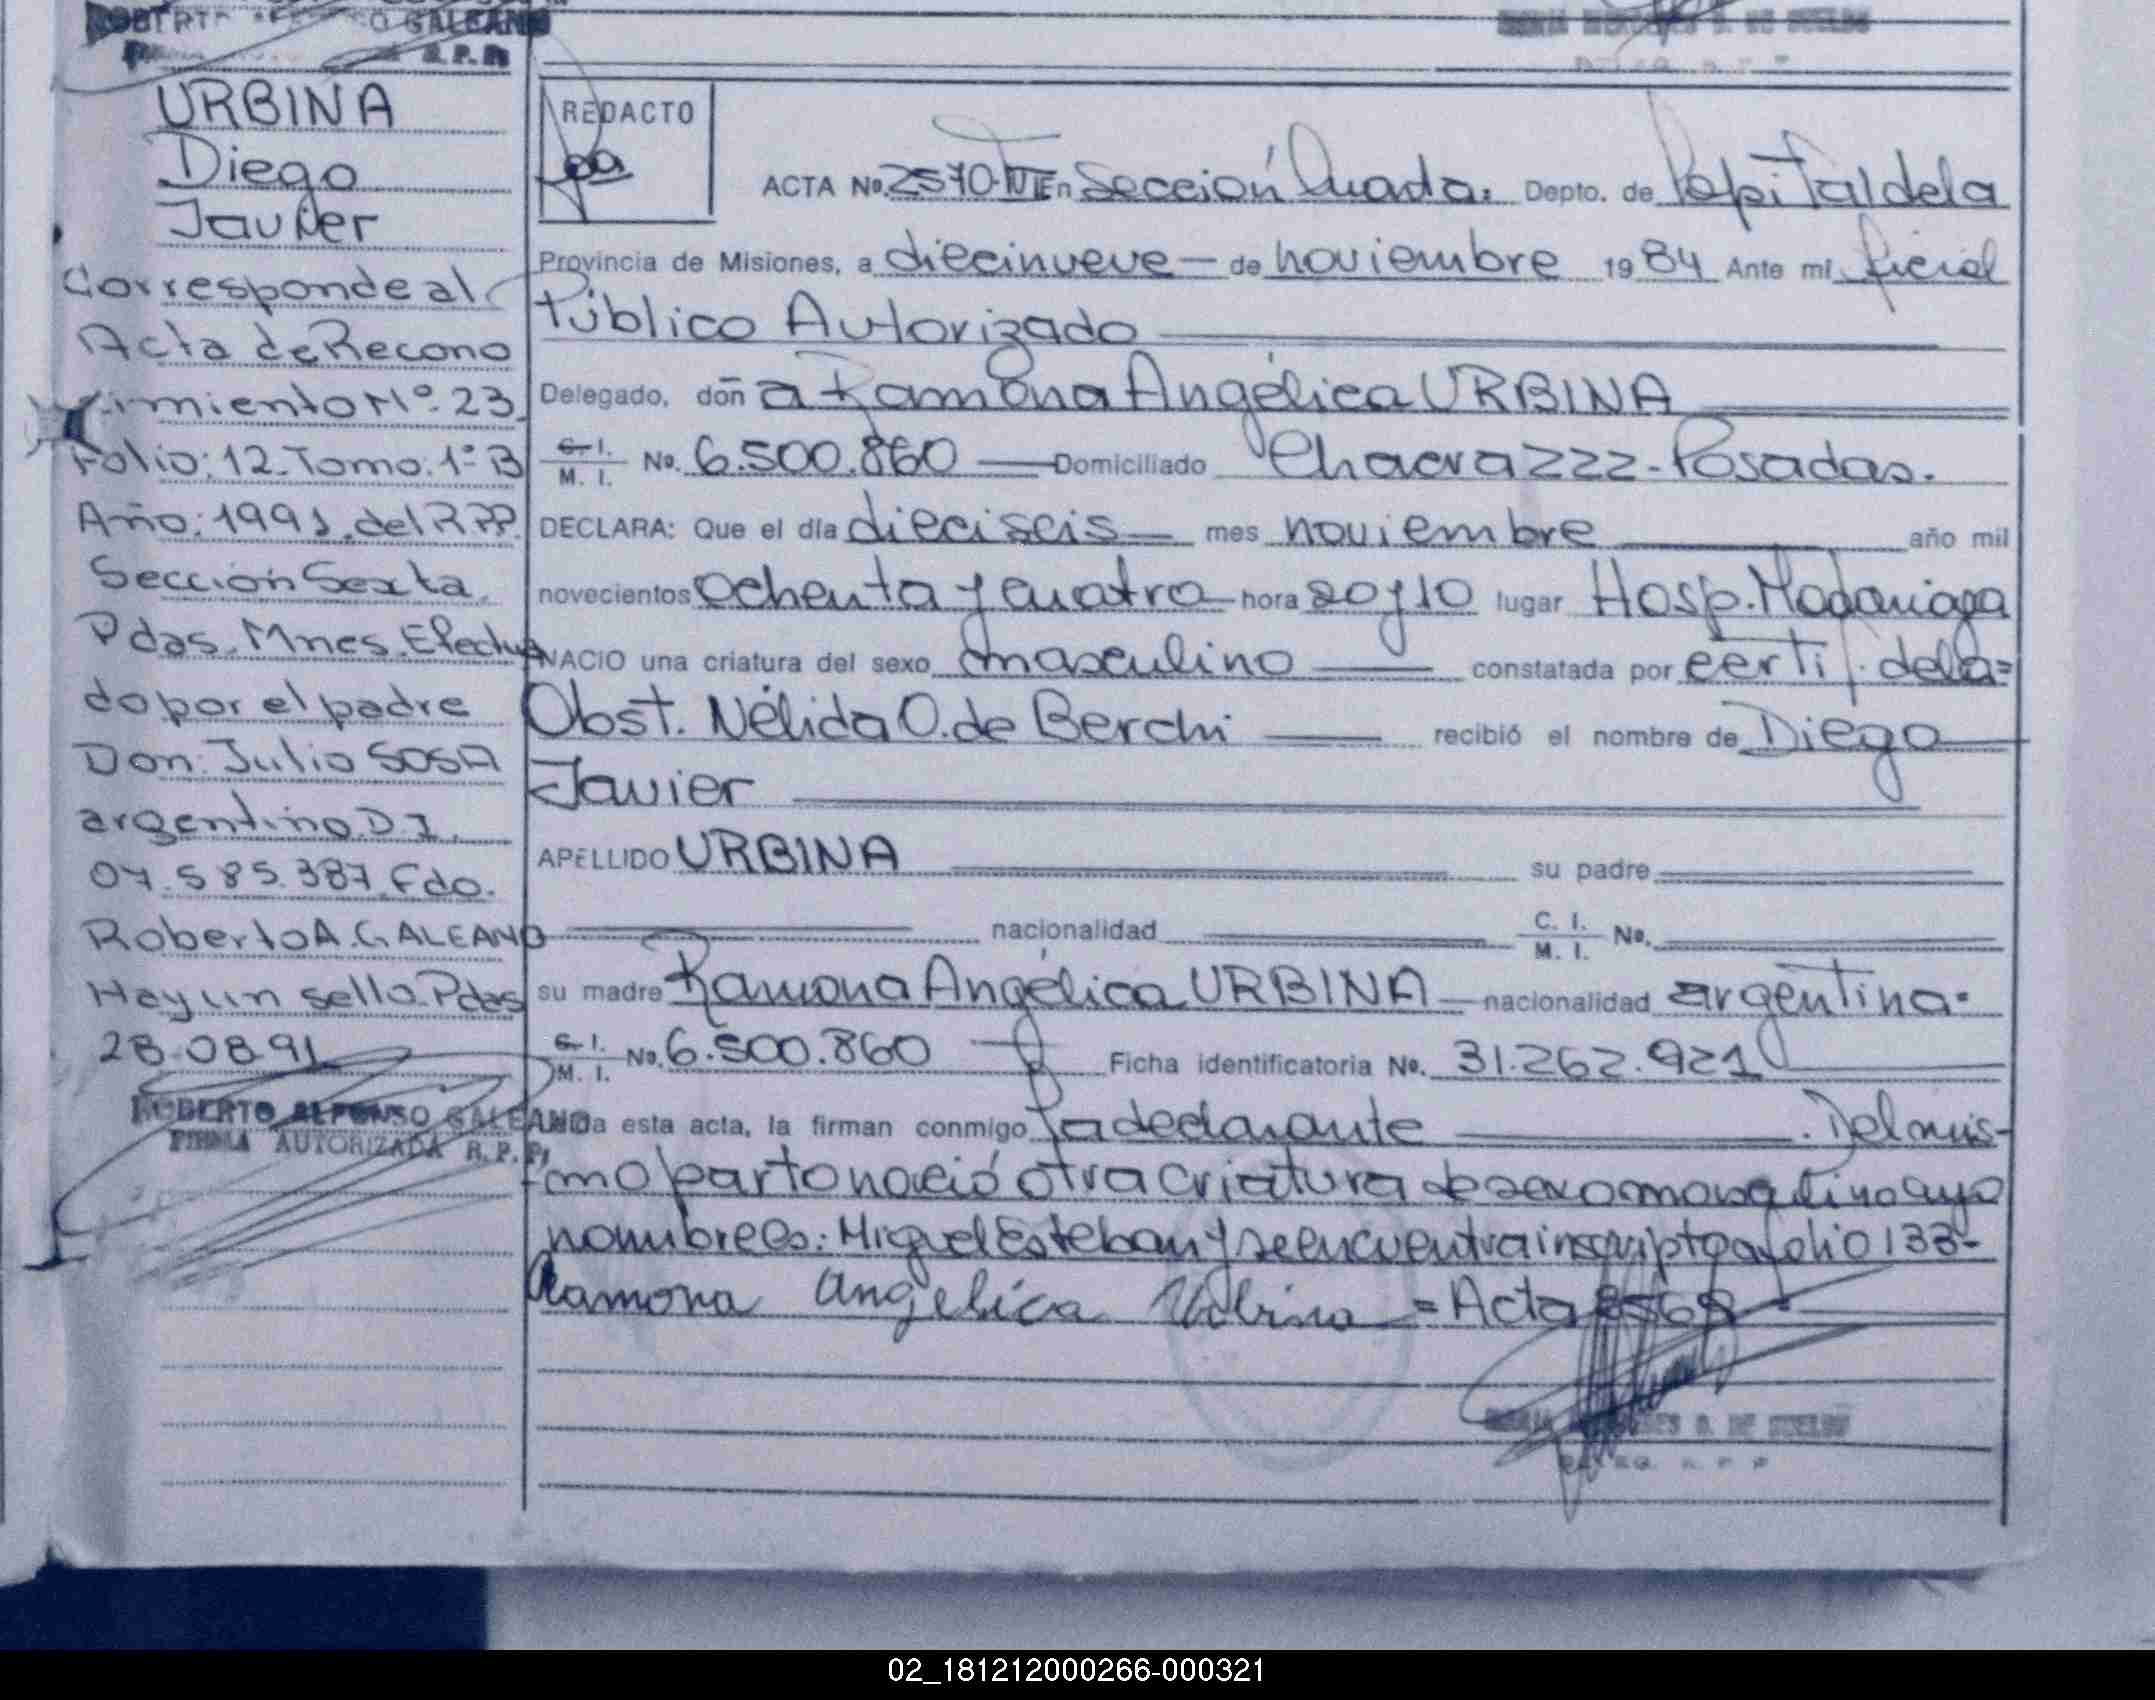 GALEANO
URBINA
Diego
Javier
Corresponde al
Acta de Recono
cimiento Nº 23
Folio: 12. Tomo: 1º B
Año: 1991. del R.P.P.
Sección Sexta
Pdas. Mnes. Efectua
do por el padre
Don: Julio SOSA
argentino D.I.
07.585.387. Fdo.
Roberto A. GALEANO
Hay un sello. Pdas
28-08-91
ROBERTO ALFONSO GALEANO
FIRMA AUTORIZADA R.P.P.
REDACTO
ACTA No. 2570-IV En Sección Cuarta. Depto. de Capital de la
Provincia de Misiones, a diecinueve de noviembre 1984 Ante mi, Oficial
Público Autorizado
Delegado, doñ a Ramona Angélica URBINA
C. I. / M. I. No. 6.500.860 Domiciliado Chacra 222 - Posadas.
DECLARA: Que el día dieciseis mes noviembre año mil
novecientos ochenta y cuatro hora 20 y 10 lugar Hosp. Madariaga
NACIO una criatura del sexo masculino constatada por certif. de la=
Obst. Nélida O. de Berchi recibió el nombre de Diego
Javier
APELLIDO URBINA su padre
nacionalidad C. I. / M. I. No.
su madre Ramona Angélica URBINA nacionalidad argentina.
C. I. / M. I. No. 6.500.860 Ficha identificatoria No. 31.262.921
esta acta, la firman conmigo la declarante. Del mis-
mo parto nació otra criatura de sexo masculino cuyo
nombre es: Miguel Esteban y se encuentra inscripto a folio 133-
Ramona Angelica Urbina = Acta 2569
02_181212000266-000321